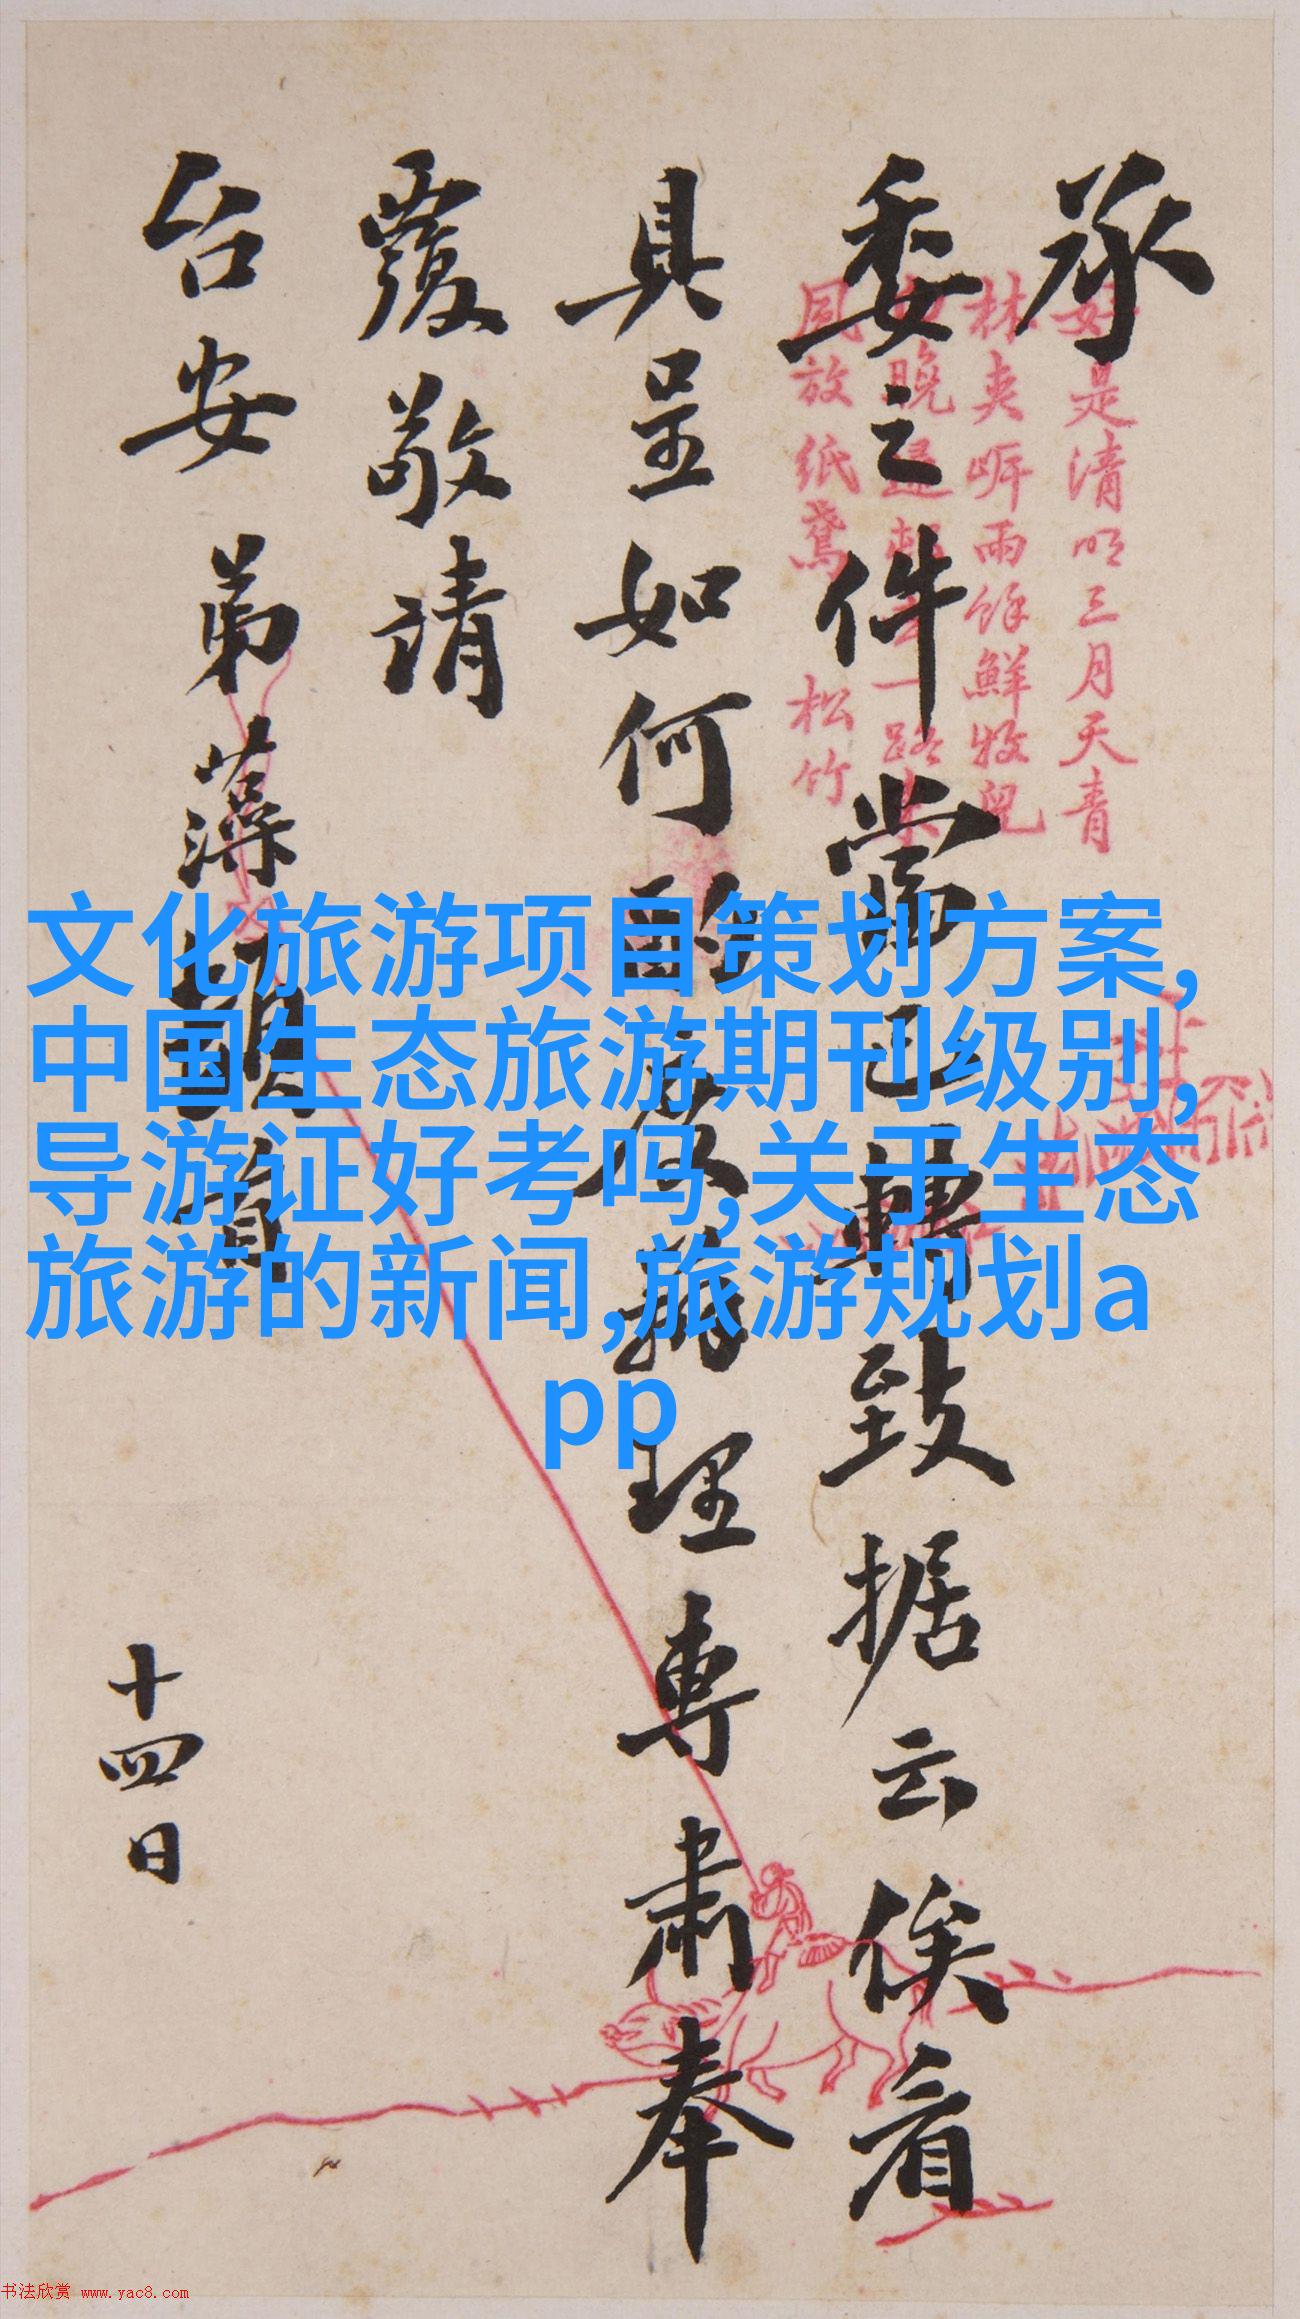 承
委之件當已轉致据云俟看
具呈如何 辦理專肅奉
覆敬請
台安 弟藻頓首
十四日
好是清明三月天青
林夹 雨餘鮮牧兒
晚 一路
風放紙鳶 松竹
文化旅游项目策划方案,
中国生态旅游期刊级别,
导游证好考吗,关于生态
旅游的新闻,旅游规划a
pp
书法欣赏 www.yac8.com